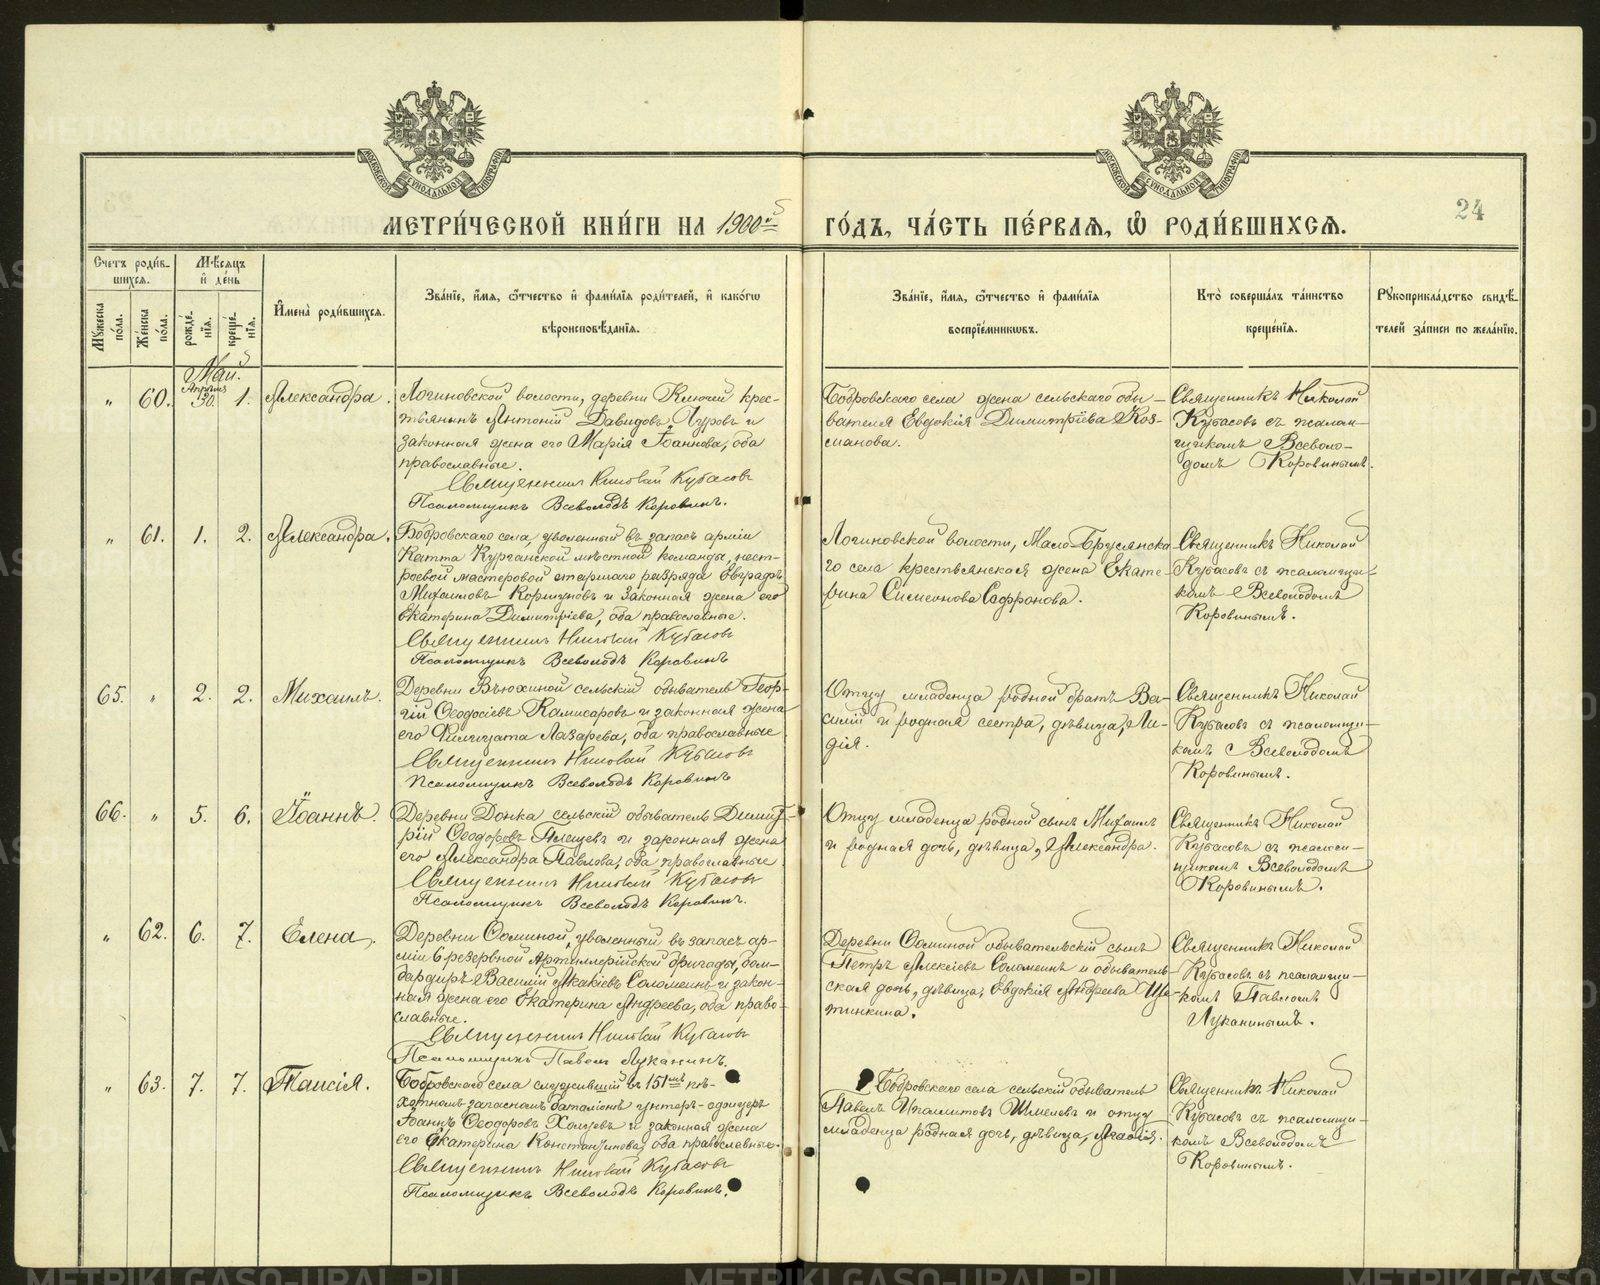 24
МЕТРИ́ЧЕСКОЙ КНИ́ГИ НА 1900й
ГО́ДЪ, ЧА́СТЬ ПЕ́РВАѦ, Ѡ҆ РОДИ́ВШИХСѦ.
МОСКОВСКОЙ СѴНОДАЛЬНОЙ ТИПОГРАФІИ
МОСКОВСКОЙ СѴНОДАЛЬНОЙ ТИПОГРАФІИ
Счетъ роди́в-
шихсѧ.
Мѣсѧцъ
и҆ де́нь
Мꙋжеска по́ла.
Же́нска по́ла.
рожде́-
нїѧ.
креще́-
нїѧ.
И҆мена̀ роди́вшихсѧ.
Зва́нїе, и҆́мѧ, ѻ҆́тчество и҆ фами́лїѧ роди́телей, и҆ како́гѡ
вѣроисповѣ́данїѧ.
Зва́нїе, и҆́мѧ, ѻ҆́тчество и҆ фами́лїѧ
воспрїе́мникѡвъ.
Кто̀ соверша́лъ та́инство
креще́нїѧ.
Рꙋкоприкла́дство свидѣ́-
телей за́писи по жела́нїю.
Май.
" 60. Апрѣль 30. 1. Александра.
Логиновской волости, деревни Ключей крес-
тьянинъ Антоній Давидовъ и
законная жена его Марія Іоаннова, оба
православные.
Священникъ Николай Кубасовъ
Псаломщикъ Всеволодъ Коровинъ.
Бобровскаго села жена сельскаго обы-
вателя Евдокія Димитріева Коз-
манова.
Священникъ Николай
Кубасовъ съ псалом-
щикомъ Всеволо-
домъ Коровинымъ.
" 61. 1. 2. Александра.
Бобровскаго села, уволенный въ запасъ арміи
Курганской мѣстной команды, нест-
роевой мастеровой старшаго разряда Евграфъ
Михаиловъ и законная жена его
Екатерина Димитріева, оба православные.
Священникъ Николай Кубасовъ
Псаломщикъ Всеволодъ Коровинъ
Логиновской волости, Мало-Брусянска-
го села крестьянская жена Екате-
рина Симеонова Сафронова.
Священникъ Николай
Кубасовъ съ псаломщи-
комъ Всеволодомъ
Коровинымъ.
65. " 2. 2. Михаилъ.
Деревни Вьюхиной сельскій обыватель Геор-
гій Ѳеодосіевъ Камисаровъ и законная жена
его Филицата Лазарева, оба православные
Священникъ Николай Кубасовъ
Псаломщикъ Всеволодъ Коровинъ
Отцу младенца родной братъ Ва-
силій и родная сестра, дѣвица, Ли-
дія.
Священникъ Николай
Кубасовъ съ псаломщи-
комъ Всеволодомъ
Коровинымъ.
66. " 5. 6. Іоаннъ.
Деревни Донка сельскій обыватель Димит-
рій Ѳеодоровъ Плещевъ и законная жена
его Александра Павлова, оба православные
Священникъ Николай Кубасовъ
Псаломщикъ Всеволодъ Коровинъ.
Отцу младенца родной сынъ Михаилъ
и родная дочь, дѣвица, Александра.
Священникъ Николай
Кубасовъ съ псалом-
щикомъ Всеволодомъ
Коровинымъ.
" 62. 6. 7. Елена.
Деревни Ѳоминой, уволенный въ запасъ ар-
міи 6 резервной Артиллерійской бригады, бом-
бардиръ Василій Акакіевъ Соломеинъ и закон-
ная жена его Екатерина Андреева, оба право-
славные.
Священникъ Николай Кубасовъ
Псаломщикъ Павелъ Луканинъ.
Деревни Ѳоминой обывательскій сынъ
Петръ Алексіевъ Соломеинъ и обыватель-
ская дочь, дѣвица, Евдокія Андреева Ще-
тинкина.
Священникъ Николай
Кубасовъ съ псаломщи-
комъ Павломъ
Луканинымъ.
" 63. 7. 7. Таисія.
Бобровскаго села служившій въ 151мъ пѣ-
хотномъ запасномъ баталіонѣ унтеръ-офицеръ
Іоаннъ Ѳеодоровъ и законная жена
его Екатерина Константинова, оба православные.
Священникъ Николай Кубасовъ
Псаломщикъ Всеволодъ Коровинъ.
Бобровскаго села сельскій обыватель
Павелъ Ипполитовъ Шмелевъ и отцу
младенца родная дочь, дѣвица,
Священникъ Николай
Кубасовъ съ псаломщи-
комъ Всеволодомъ
Коровинымъ.
METRIKI.GASO-URAL.RU